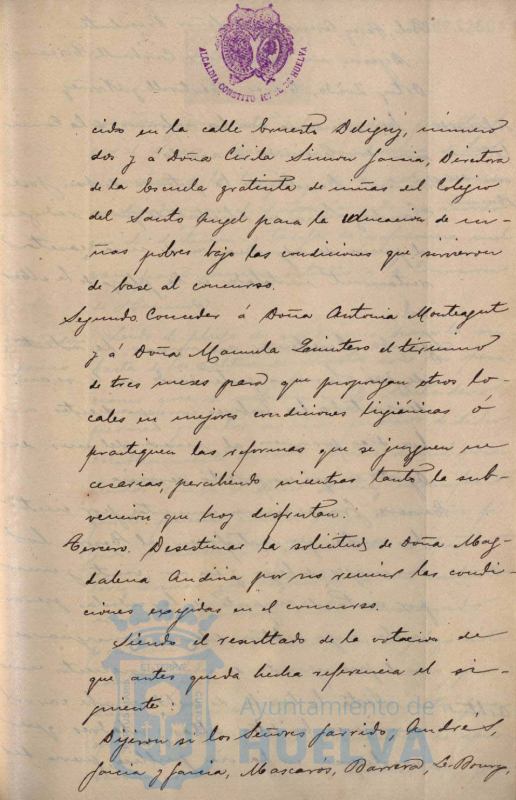 ALCALDIA CONSTITUCIONAL DE HUELVA
cido en la calle Ernesto Deligny, número
dos y á Doña Cirila Simon Garcia, Directora
de la Escuela gratuita de niñas del Colegio
del Santo Angel para la educacion de ni-
ñas pobres bajo las condiciones que sirvieron
de base al concurso.
Segundo. Conceder á Doña Antonia Monteagut
y á Doña Manuela Quintero el término
de tres meses para que propongan otros lo-
cales en mejores condiciones higiénicas ó
practiquen las reformas que se juzguen ne
cesarias, percibiendo mientras tanto la sub-
vencion que hoy disfrutan.
Tercero. Desestimar la solicitud de Doña Mag-
dalena Andina por no reunir las condi-
ciones exigidas en el concurso.
Siendo el resultado de la votacion de
que antes queda hecha referencia el si-
guiente:
Dijeron si los Señores Garrido, Andrés,
Garcia y Garcia, Mascarós, Barrera, Le-Bourg,
Ayuntamiento de
HUELVA